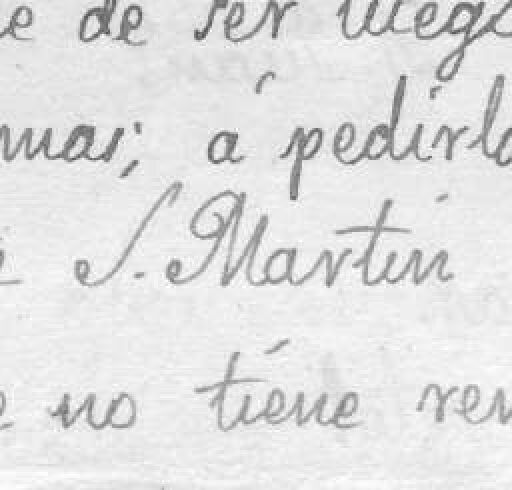 e de ser luego
mas; á pedirlo
S. Martin
no tiene